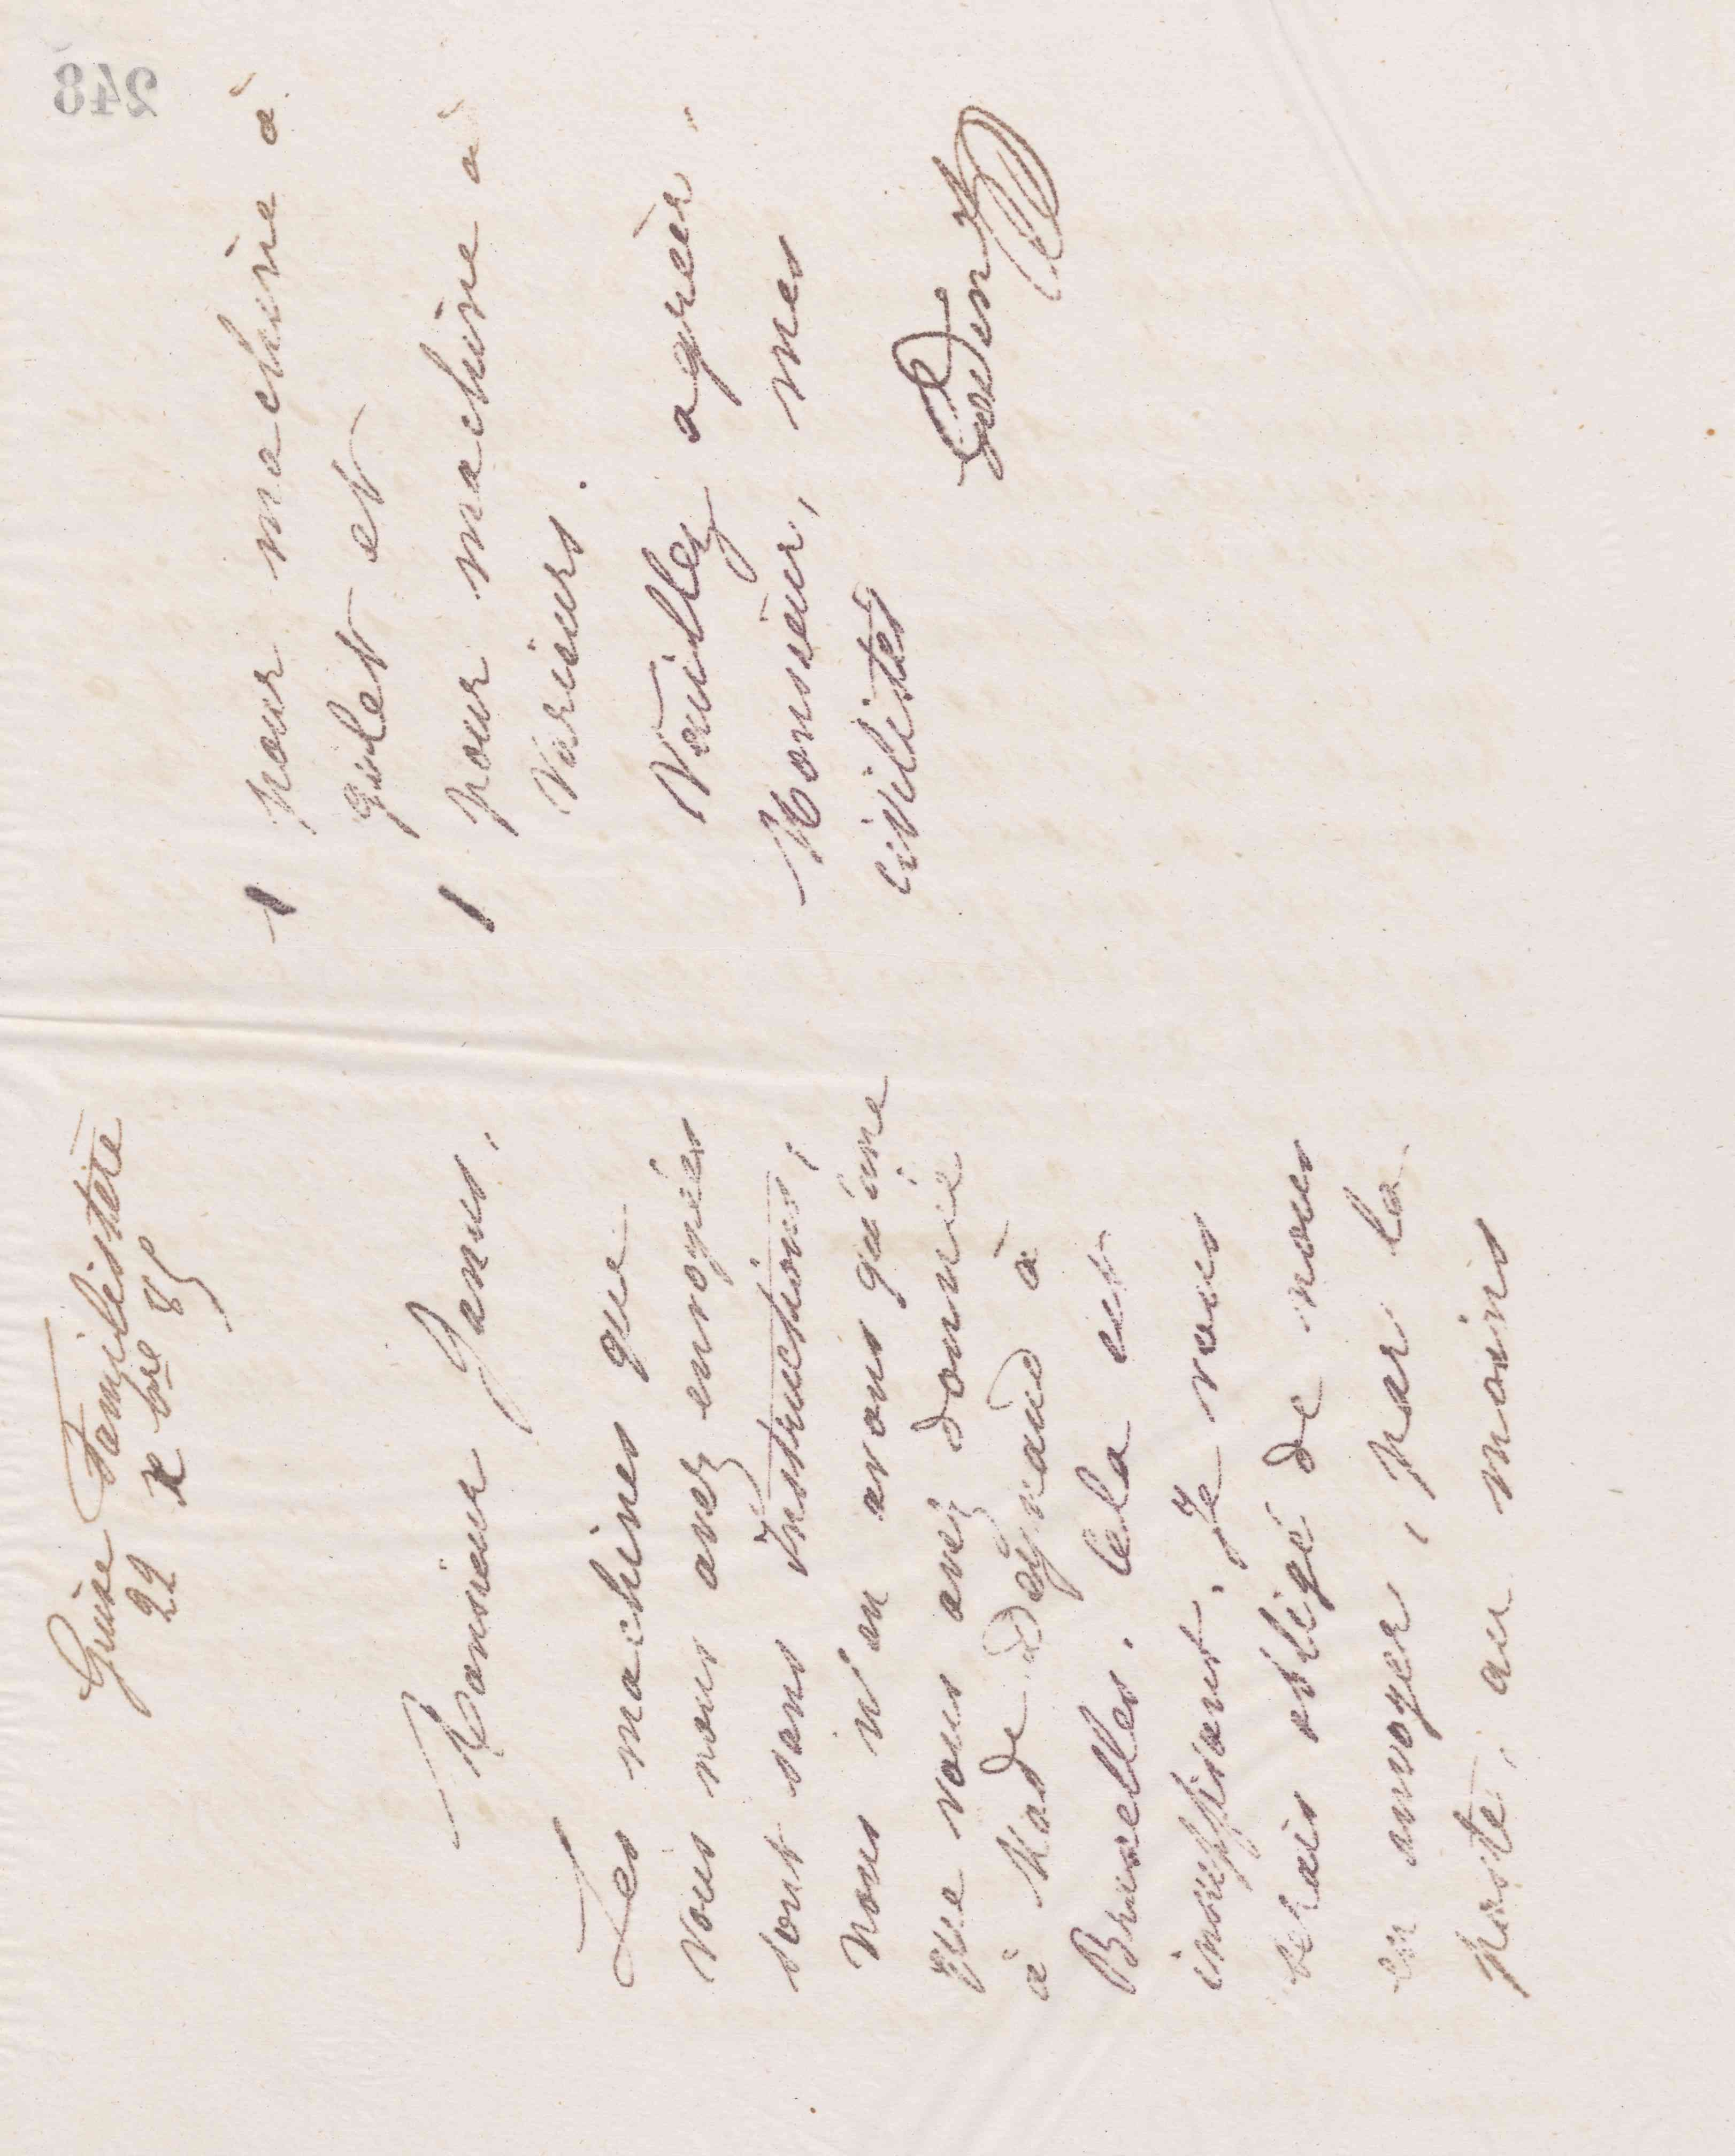 248
Guise Familistère
22 Xbre 85
Monsieur Janus,
Les machines que
vous nous avez envoyées
sont sans instructions,
nous n'en avons qu'une
que vous avez donnée
à Made Deynaud à
Bruxelles. Cela est
insuffisant. Je vous
serais obligé de nous
en envoyer, par la
poste, au moins
1 pour machine à
gilet et
1 pour machine à
Varieurs.
Veuillez agréer,
Monsieur, mes
civilités
Godin